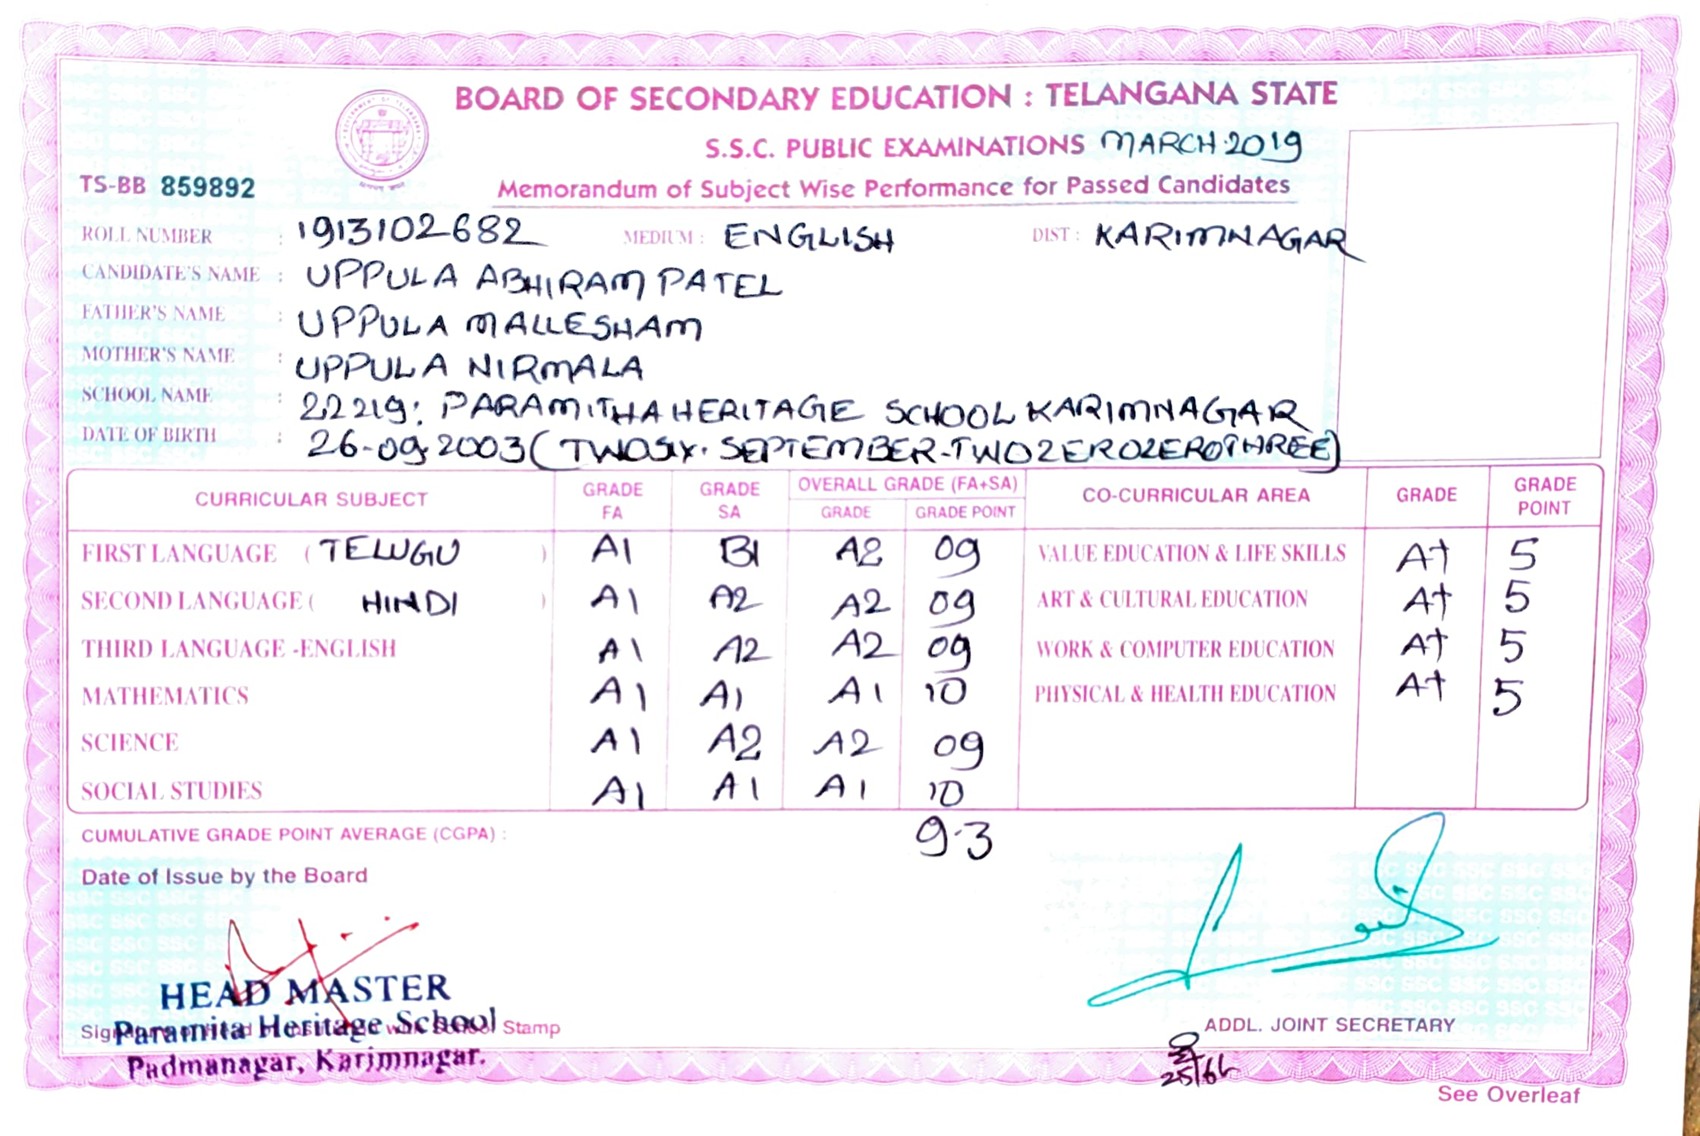 BOARD OF SECONDARY EDUCATION : TELANGANA STATE
S.S.C. PUBLIC EXAMINATIONS MARCH-2019
TS-BB 859892
Memorandum of Subject Wise Performance for Passed Candidates
ROLL NUMBER : 1913102682 MEDIUM : ENGLISH DIST : KARIMNAGAR
CANDIDATE'S NAME : UPPULA ABHIRAM PATEL
FATHER'S NAME : UPPULA MALLESHAM
MOTHER'S NAME : UPPULA NIRMALA
SCHOOL NAME : 22219: PARAMITHA HERITAGE SCHOOL KARIMNAGAR
DATE OF BIRTH : 26-09-2003 (TWOSIX-SEPTEMBER-TWOZEROZEROTHREE)
CURRICULAR SUBJECT GRADE FA GRADE SA OVERALL GRADE (FA+SA) GRADE GRADE POINT CO-CURRICULAR AREA GRADE GRADE POINT
FIRST LANGUAGE (TELUGU) A1 B1 A2 09 VALUE EDUCATION & LIFE SKILLS A+ 5
SECOND LANGUAGE (HINDI) A1 A2 A2 09 ART & CULTURAL EDUCATION A+ 5
THIRD LANGUAGE -ENGLISH A1 A2 A2 09 WORK & COMPUTER EDUCATION A+ 5
MATHEMATICS A1 A1 A1 10 PHYSICAL & HEALTH EDUCATION A+ 5
SCIENCE A1 A2 A2 09
SOCIAL STUDIES A1 A1 A1 10
CUMULATIVE GRADE POINT AVERAGE (CGPA) : 9.3
Date of Issue by the Board
HEAD MASTER
Paramita Heritage School
Stamp
Padmanagar, Karimnagar.
ADDL. JOINT SECRETARY
See Overleaf